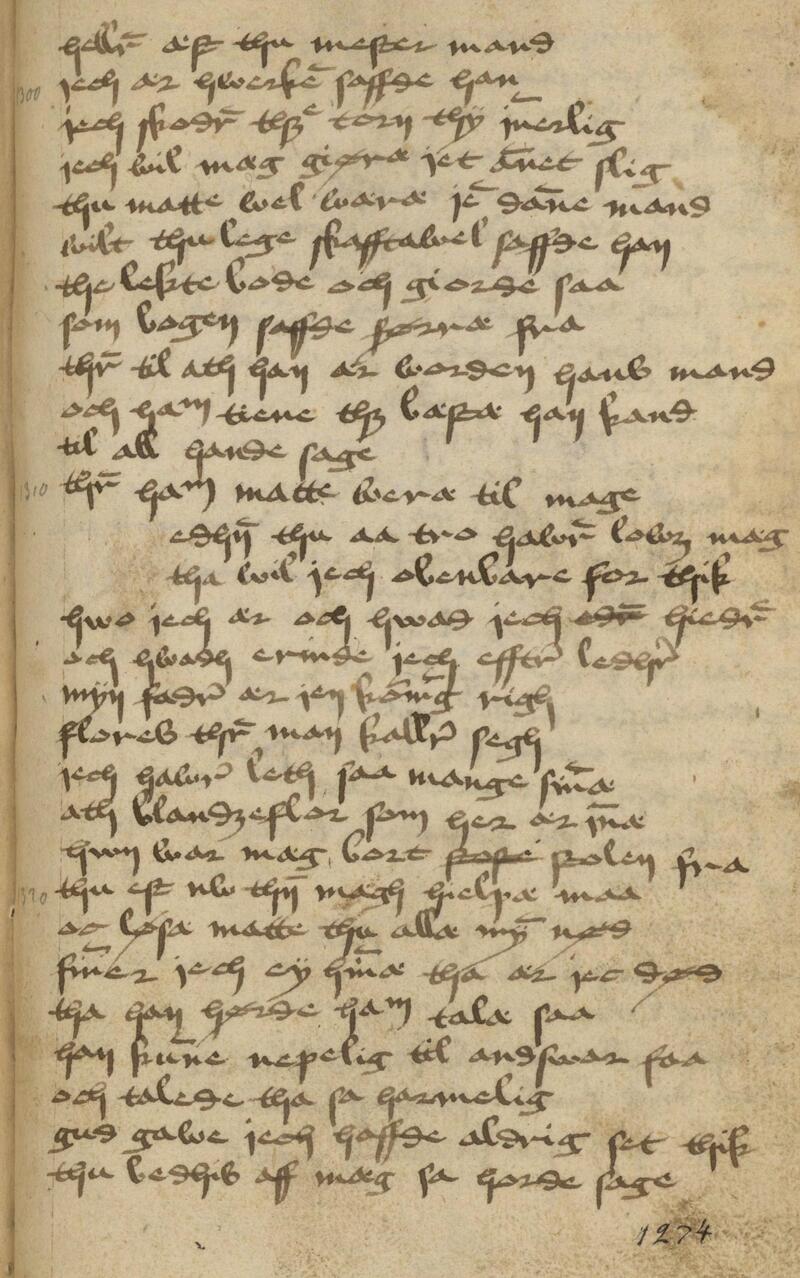 hellr̄ æst thu mester mand
300 jech ær hwerkē saffde han
jech skodr̄ thꝫ torn thy īnerlig
jech wil mæg giøræ jet ān̄et slig
thu matte wel wæræ jē dan̄e mand
wilt thu lege skafftawel saffde han
the lekte bode och giorde saa
som bogen saffde førræ fra
thr̄ til ath han ær worden hans mand
och ham tiene thꝫ bæstæ han kand
til all hande sage
310 thr̄ ham matte weræ til mage
edhn̄ thu aa tro hawr̄ lowꝫ mæg
tha wil jech obenbare for thik
hwo jech ær och hwad jech edr̄ hiedr̄
och hwadh erinde jech efftr̄ ledhr̄
myn fadr̄ ær jen kōnīg righ
flores thr̄ man kallr̄ segh
jech hawr̄ leth saa mange sīnæ
ath blandzeflor som her ær īnæ
hwn war mæg bort stole stolen fra
320 thu est nw thn̄ magh hielpæ maa
oc løsæ matte thu allæ mȳ nød
fīner jech ey hīnæ tha ær jec død
tha han hørde ham talæ saa
han kun̄e nepelig til andswar faa
och talede tha sa harmelig
gud gawe jech haffde aldrig set thik
thu bedhis aff mæg sa horde sage
1274